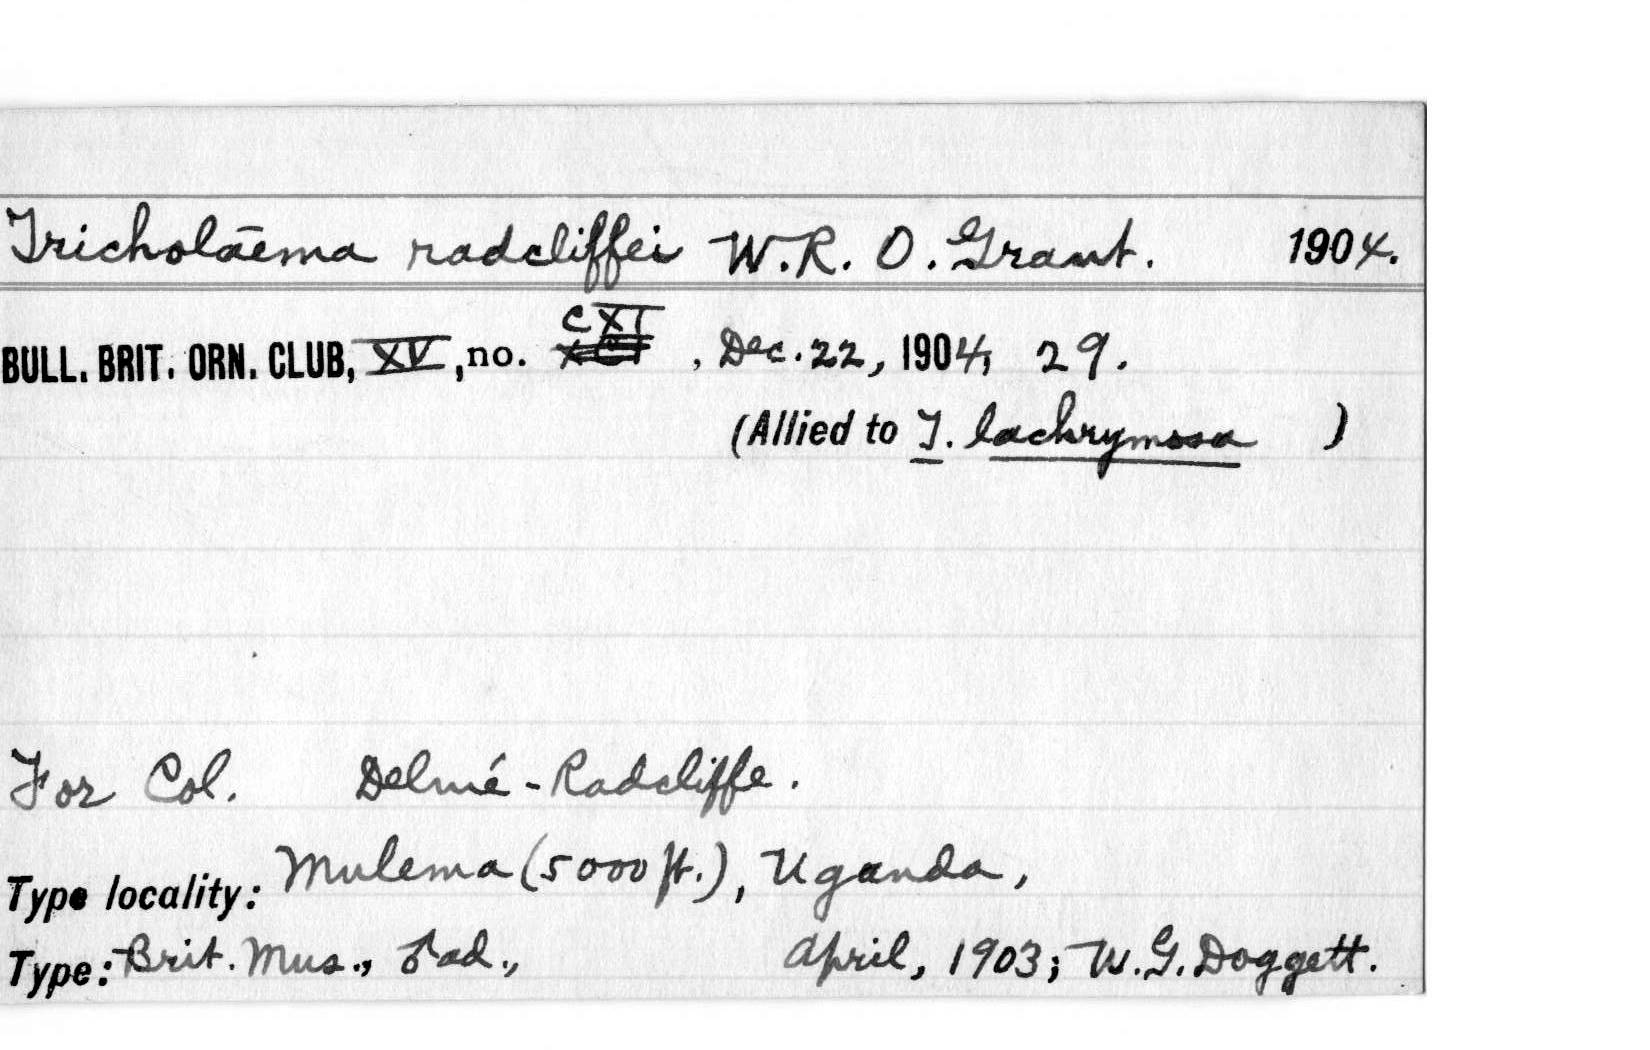 Tricholāema radcliffei W.R. O. Grant. 1904.
BULL. BRIT. ORN. CLUB, XV, no. CXI, Dec. 22, 1904, 29.
(Allied to T. lachrymosa )
For Col. Delmé-Radcliffe.
Type locality: Mulema (5000 ft.), Uganda,
Type: Brit. Mus., ♂ ad., April, 1903; W.G. Doggett.